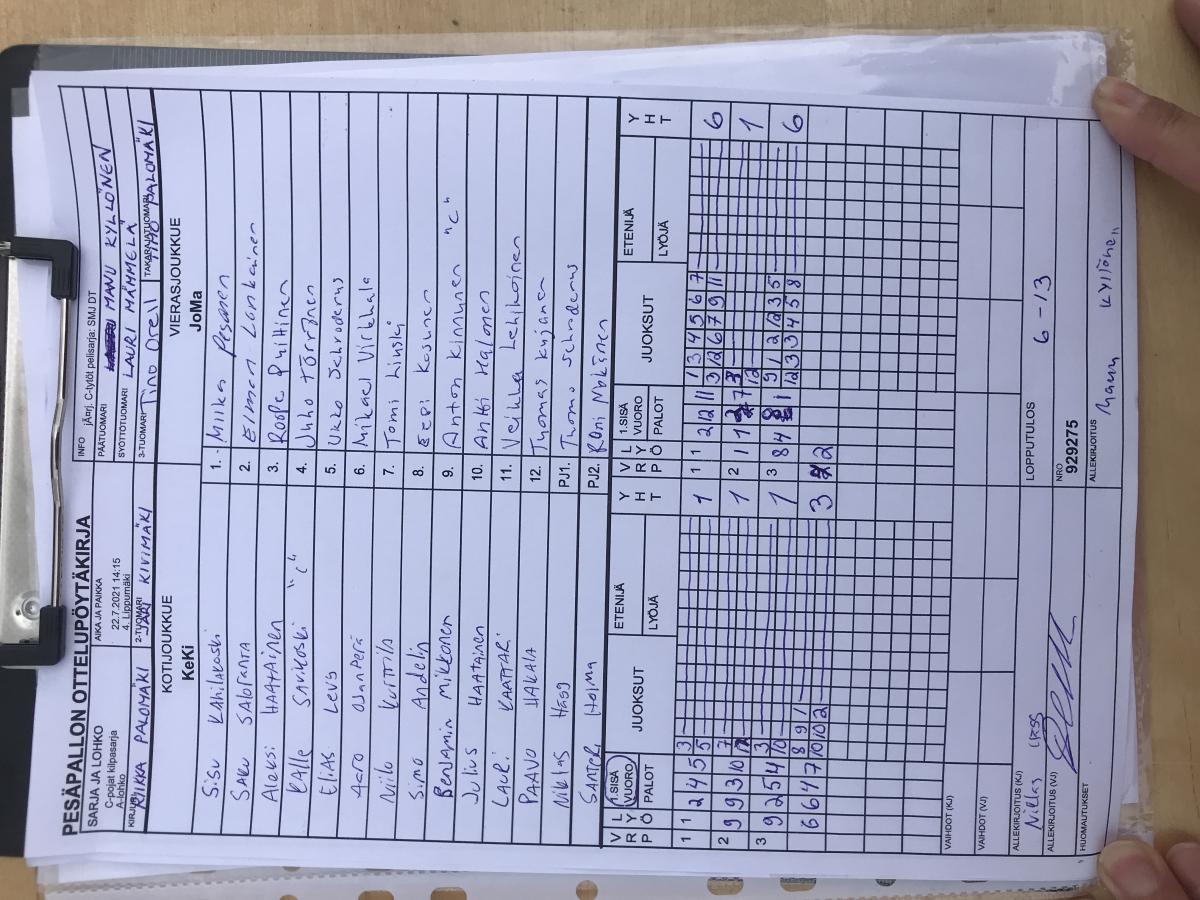 PESÄPALLON OTTELUPÖYTÄKIRJA
SARJA JA LOHKO
C-pojat kilpasarja
A-lohko
AIKA JA PAIKKA
22.7.2021 14:15
4. Lippumäki
INFO jÄrj. C-tytöt pelisarja: SMJ DT
PÄÄTUOMARI MANU KYLLÖNEN
SYÖTTÖTUOMARI LAURI MÄHMELÄ
KIRJURI RIIKKA PALOMÄKI
2-TUOMARI JARI KIVIMÄKI
3-TUOMARI Tino Orell
TAKARAJATUOMARI TIMO PALOMÄKI
KOTIJOUKKUE
KeKi
VIERASJOUKKUE
JoMa
Sisu Kahilakoski 1. Miika Pesonen
SAKU SALORANTA 2. Eemon Lonkainen
Aleksi HAATAINEN 3. Roope Puittinen
KAlle SAVIKOSKI "C" 4. Juho Törrönen
Elias Levs 5. Ukko Schroderus
Aaro Ojanperä 6. Mikael Virkkala
Viilo Kurttila 7. Tomi Liuski
Simo Andelin 8. Eepi Kosunen
Benjamin Mikkonen 9. Anton Kinnunen "C"
Julius HAATAINEN 10. Antti Halonen
LAURI KAATTARI 11. Veikka Lehikoinen
PAAVO HAKALA 12. Thomas Kujanen
Niklas Hägg PJ1. Thomo Schroderus
SANTERI Holma PJ2. Roni Mökänen
V R P L Y Ö 1.SISÄ VUORO PALOT JUOKSUT ETENIJÄ LYÖJÄ Y H T
V R P L Y Ö 1.SISÄ VUORO PALOT JUOKSUT ETENIJÄ LYÖJÄ Y H T
1 1 2 4 5 3 1
5
1 1 2 12 11 1 3 4 5 6 7 6
3 12 6 7 9 11
2 9 9 3 10 7 1
2 1 1 7 1
12
3 9 2 5 4 3 1
10
3 8 4 1 9 1 2 12 3 5 6
12 3 3 4 5 8
6 6 4 7 8 9 1 3
10 10 2
2
VAIHDOT (KJ)
VAIHDOT (VJ)
ALLEKIRJOITUS (KJ)
Niklas
ALLEKIRJOITUS (VJ)
HUOMAUTUKSET
LOPPUTULOS 6 - 13
NRO
929275
ALLEKIRJOITUS
Manu Kyllönen